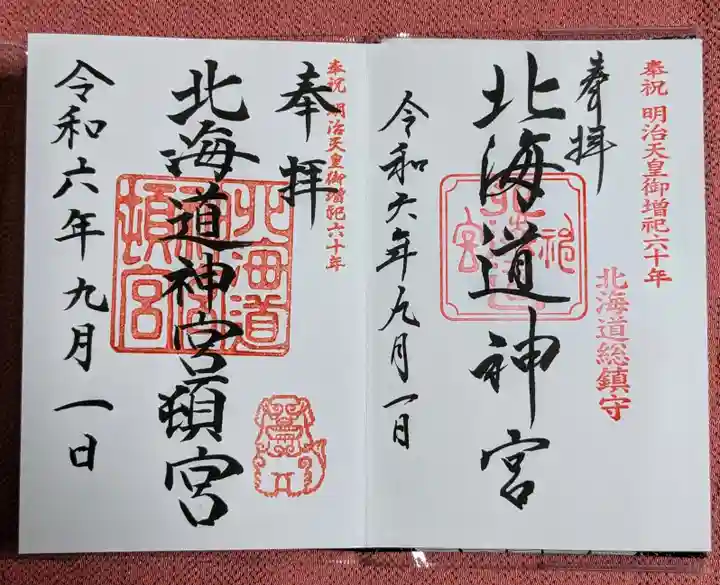 奉祝 明治天皇御増祀六十年
北海道総鎮守
奉拝
北海道神宮
令和六年九月一日
奉祝 明治天皇御増祀六十年
奉拝
北海道神宮頓宮
北海道
頓宮
令和六年九月一日